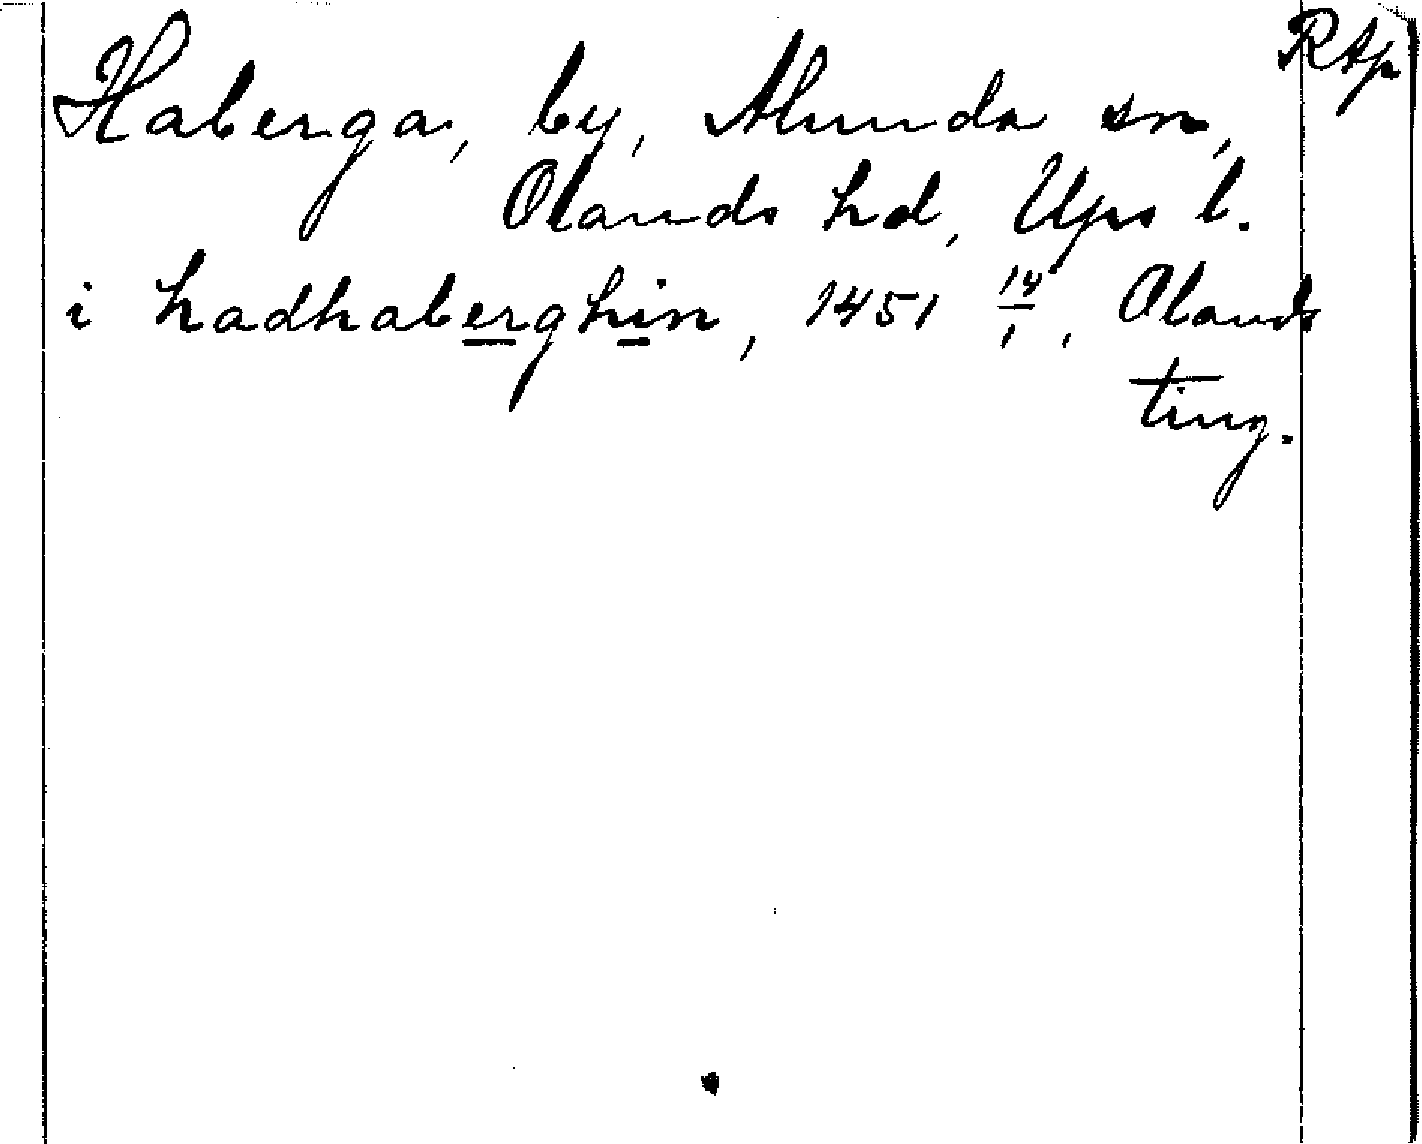 RAp
Haberga, by, Alunda sn,
Olands hd, Ups l.
i hadhaberghin, 1451 14/1, Olands
ting.